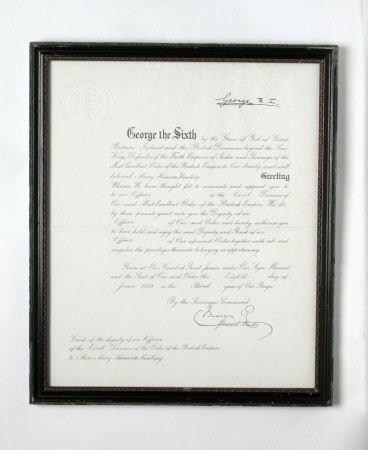 George R I
George the Sixth by the Grace of God of Great
Britain Ireland and the British Dominions beyond the Seas
King, Defender of the Faith Emperor of India and Sovereign of the
Most Excellent Order of the British Empire to Our trusty and well
beloved Mary Greeting
Whereas We have thought fit to nominate and appoint you to
be an Officer of the Civil Division of
Our said Most Excellent Order of the British Empire We do
by these presents grant unto you the Dignity of an
Officer of Our said Order and hereby authorise you
to have hold and enjoy the said Dignity and Rank of an
Officer of Our aforesaid Order together with all and
singular the privileges thereunto belonging or appertaining
Given at Our Court at Saint James's under Our Sign Manual
and the Seal of Our said Order this Eighth day of
June 1939 in the Third year of Our Reign
By the Sovereign's Command
Grand Master
Grant of the dignity of an Officer
of the Civil Division of the Order of the British Empire
to Miss Mary